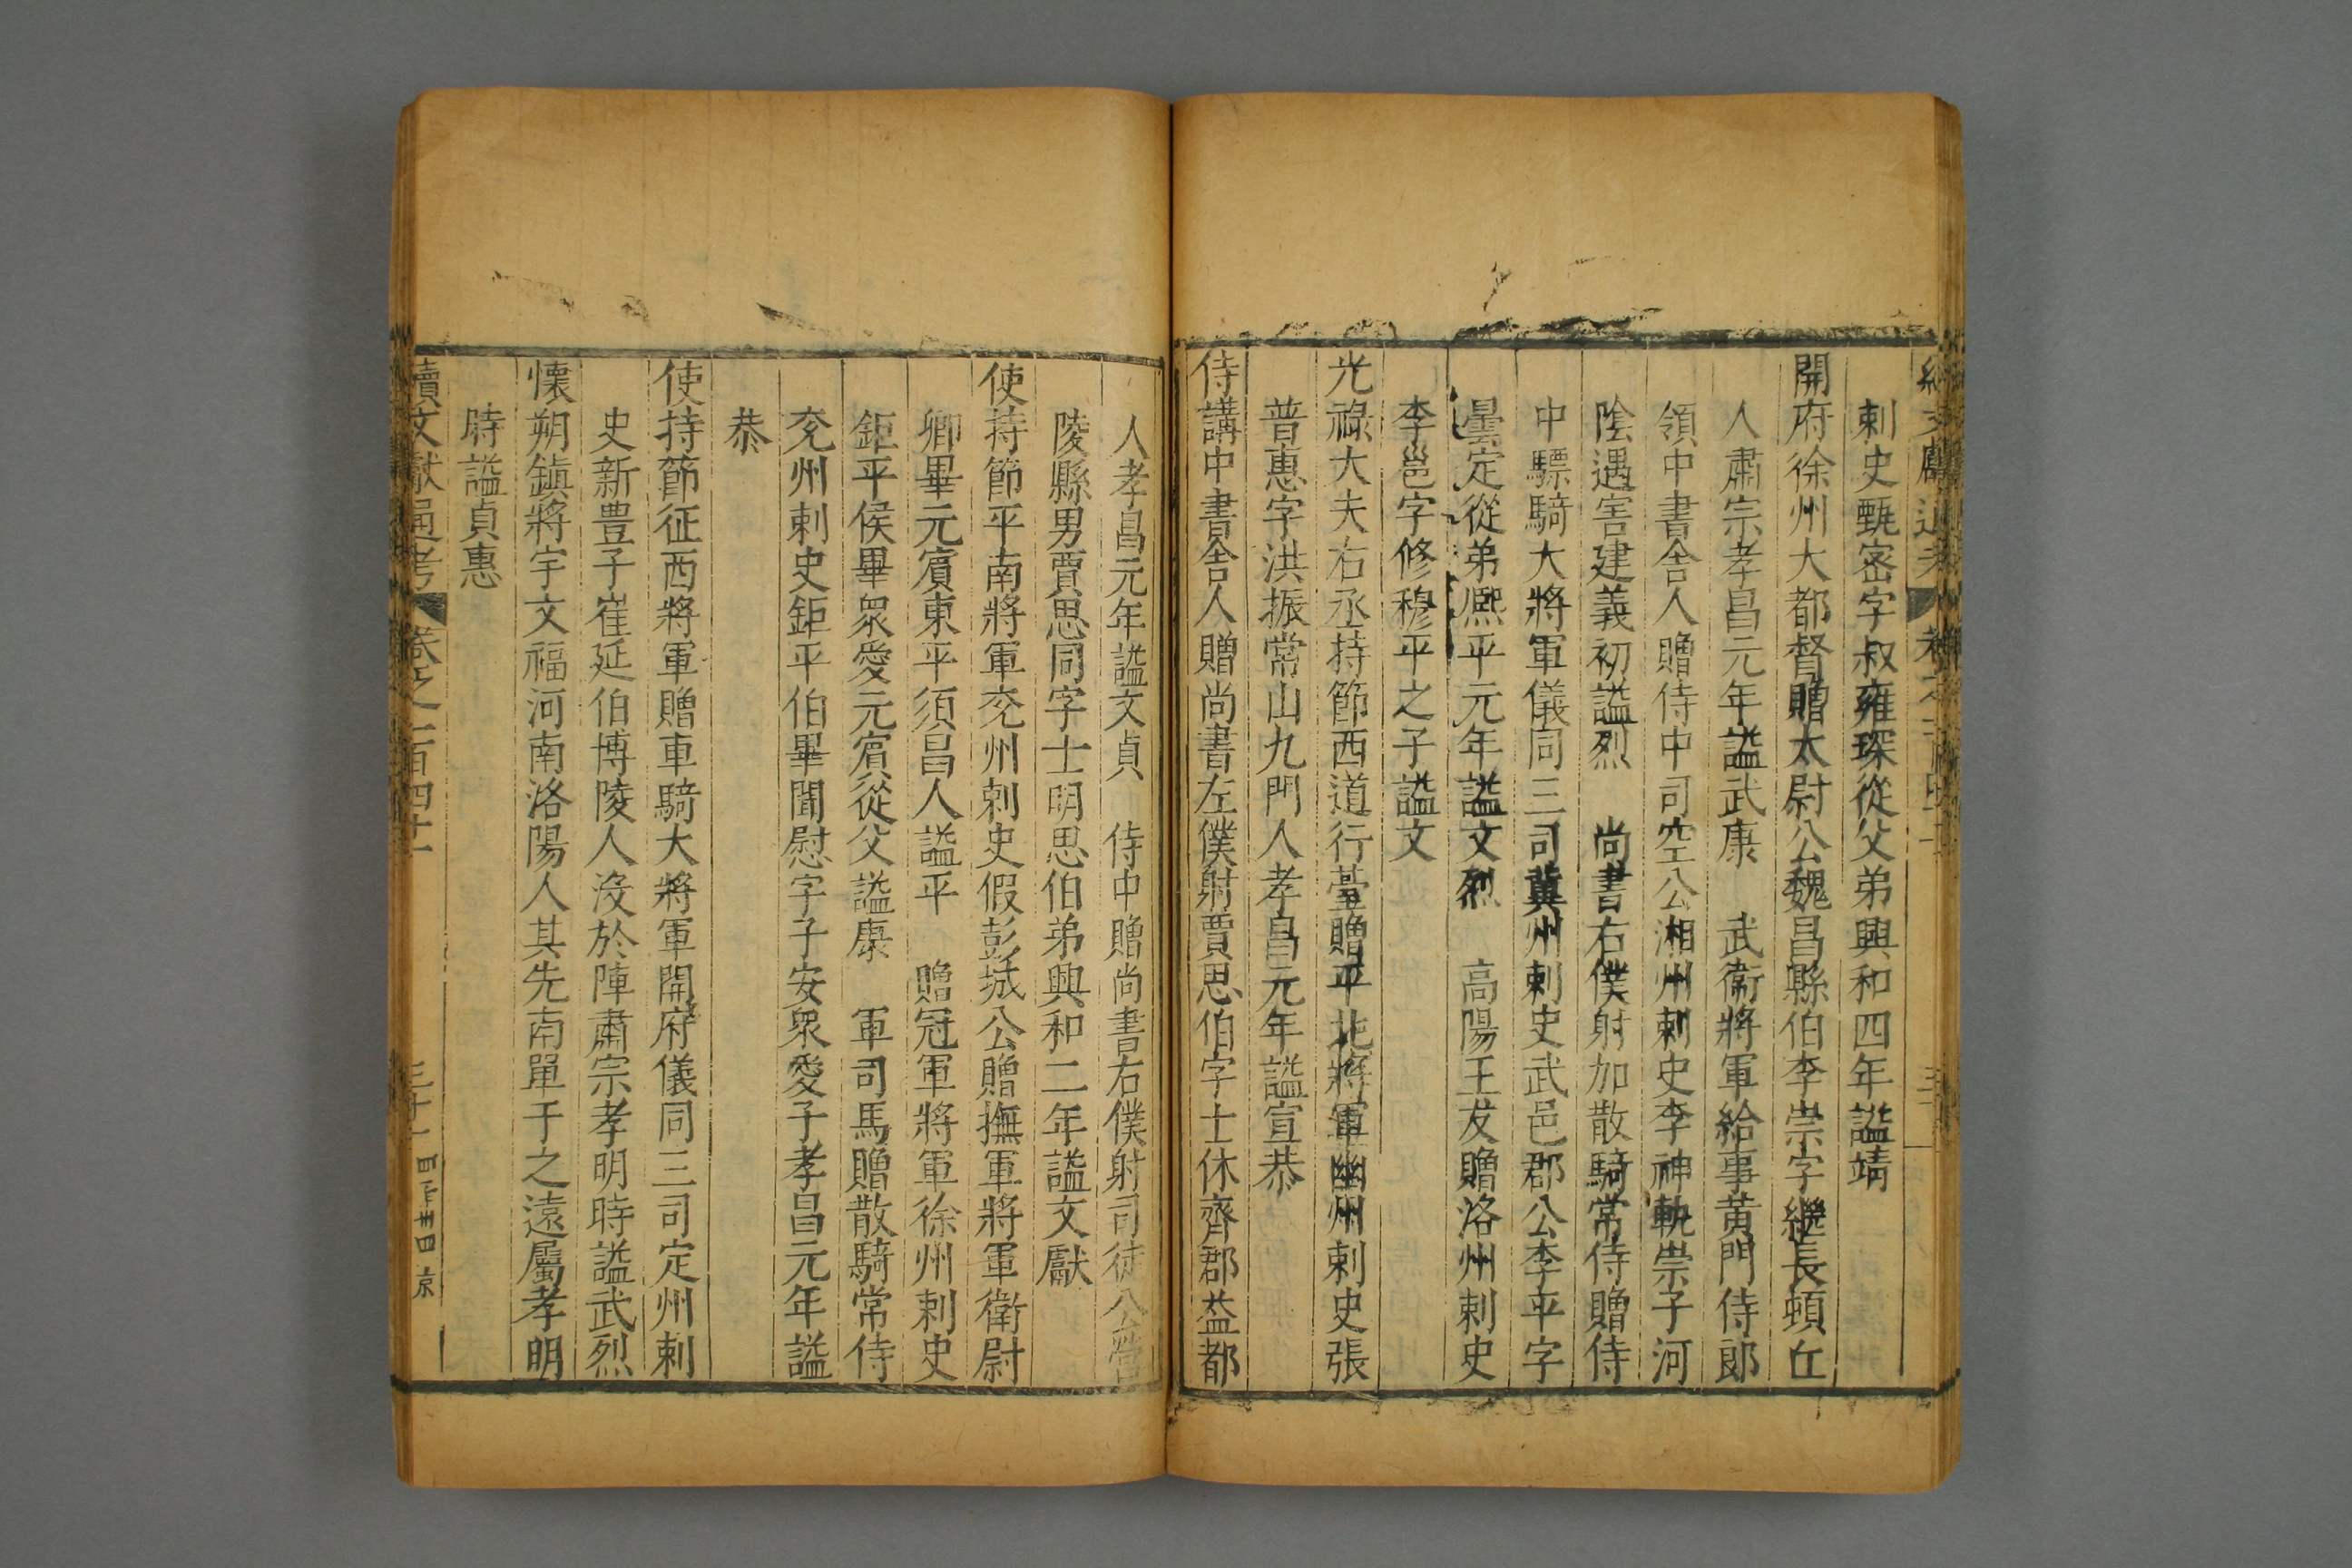 刺史甄密字叔雍琛從父弟興和四年謚靖
開府徐州大都督贈太尉公魏昌縣伯李崇字繼長頓丘
人肅宗孝昌元年謚武康　武衛將軍給事黃門侍郎
領中書舍人贈侍中司空公湘州刺史李神軌崇子河
陰遇害建義初謚烈　尚書右僕射加散騎常侍贈侍
中驃騎大將軍儀同三司冀州刺史武邑郡公李平字
曇定從弟熈平元年謚文烈　高陽王友贈洛州刺史
李邕字修穆平之子謚文
光祿大夫右丞持節西道行臺贈平北將軍幽州刺史張
普惠字洪振常山九門人孝昌元年謚宣恭
侍講中書舍人贈尚書左僕射賈思伯字士休齊郡益都
人孝昌元年謚文貞　侍中贈尚書右僕射司徒公營
陵縣男賈思同字士明思伯弟興和二年謚文獻
使持節平南將軍兗州刺史假彭城公贈撫軍將軍衛尉
卿畢元賓東平須昌人謚平　贈冠軍將軍徐州刺史
鉅平侯畢眾愛元賓從父謚康　軍司馬贈散騎常侍
兗州刺史鉅平伯畢聞慰字子安眾愛子孝昌元年謚
恭
使持節征西將軍贈車騎大將軍開府儀同三司定州刺
史新豊子崔延伯博陵人沒於陣肅宗孝明時謚武烈
懷朔鎮將宇文福河南洛陽人其先南單于之遠屬孝明
時謚貞惠
續文獻通考　卷之一百四十一　三十一　四百卅四　京